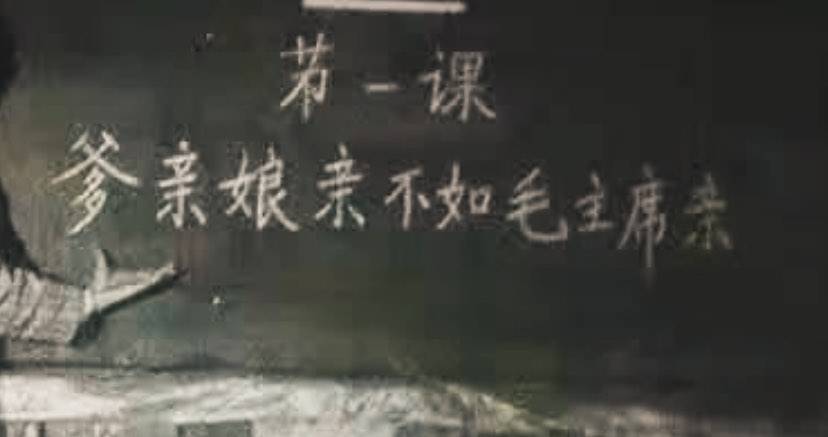 第一课
爹亲娘亲不如毛主席亲